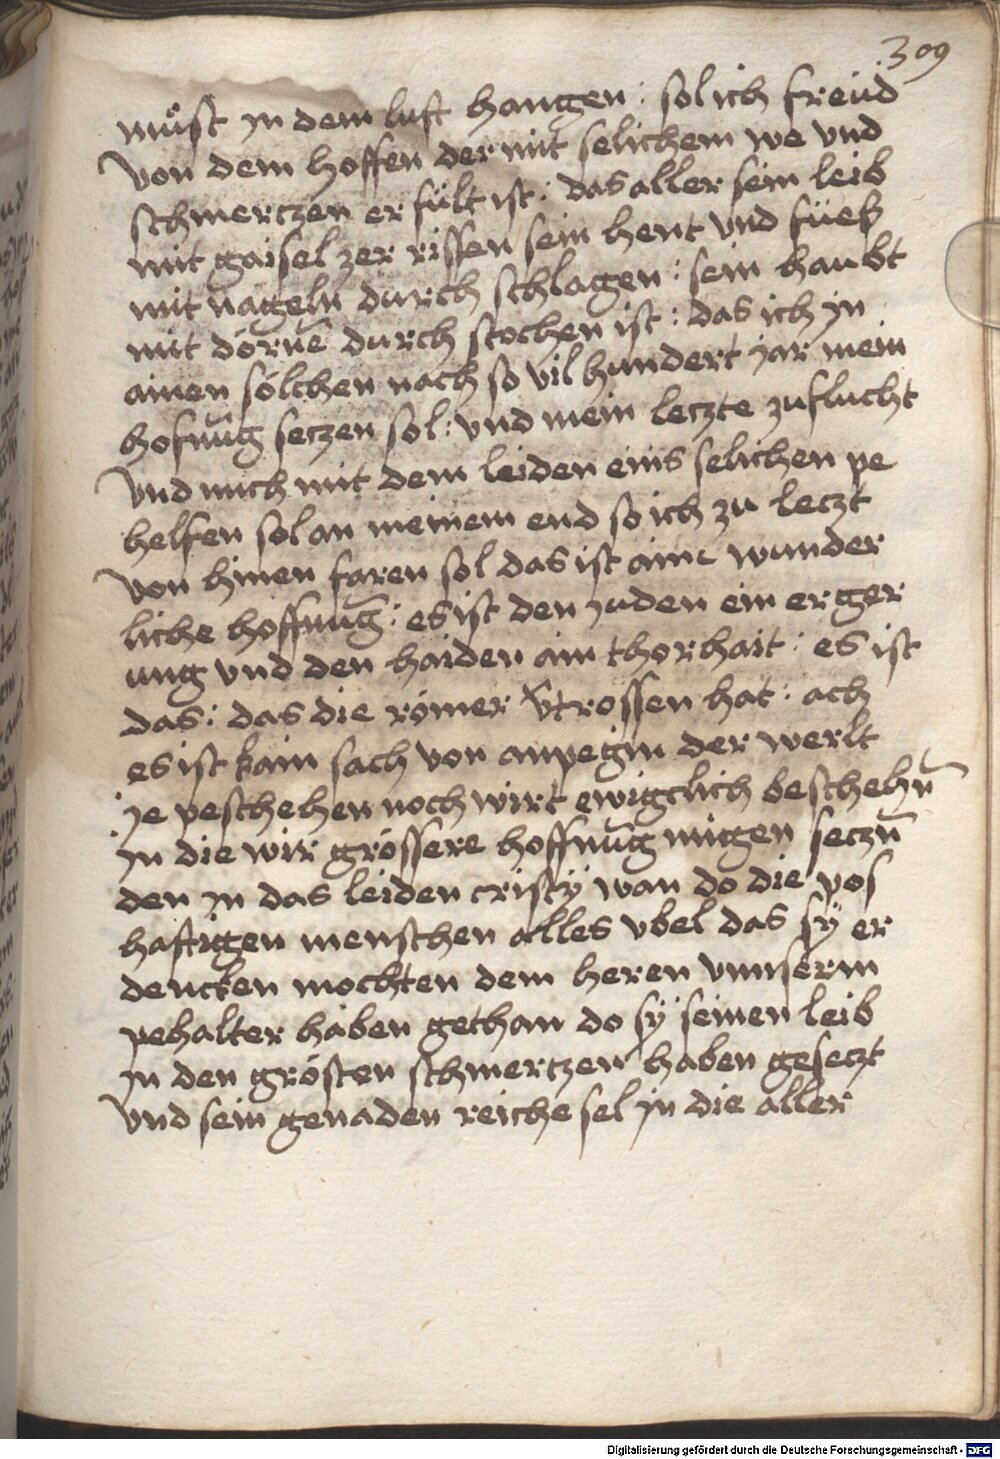 309
muͦst jn dem luft hangen : sol ich freüd
von dem hoffen der mit selichem we vnd
schmertzen er fült ist : das aller sein leib
mit gaisel zer rissen sein hent vnd füeß
mit nageln durch schlagen : sein haubt
mit dörnē durch stochen ist : das ich jn
ainen sölchen nach so vil hundert jar mein
hofnūg seczen sol : vnd mein leczte zuflucht
vnd mich mit dem leiden einis selichen pe
helfen sol an meinem end so ich zu leczt
von hinnen faren sol das ist aine wunder
liche hoffnūg : es ist den juden ein er ger
ung vnd den haiden ain thorhait : es ist
das : das die römer hat : ach
es ist kain sach von anpegin der werlt
je peschehen noch wirt ewigclich beschehn̄
jn die wir grössere hoffnūg mügen seczn̄
den jn das leiden cristÿ wan do die pos
haftigen menschen alles vbel das sÿ er
dencken mochten dem heren vnnserm
pehalter haben gethan do sÿ seinen leib
jn den grösten schmertzen haben geseczt
vnd sein genaden reiche sel jn die aller
Digitalisierung gefördert durch die Deutsche Forschungsgemeinschaft - DFG